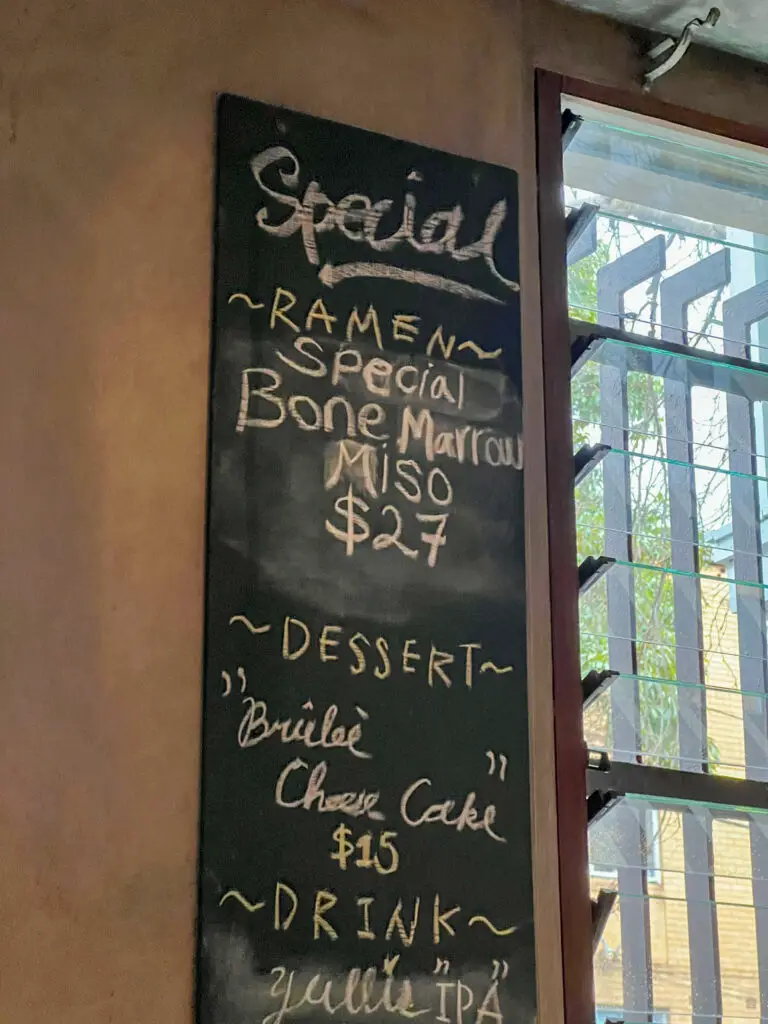 Special
~RAMEN~
Special
Bone Marrow
Miso
$27
~DESSERT~
"Brûleè
Cheese Cake"
$15
~DRINK~
Yulli's "IPA"